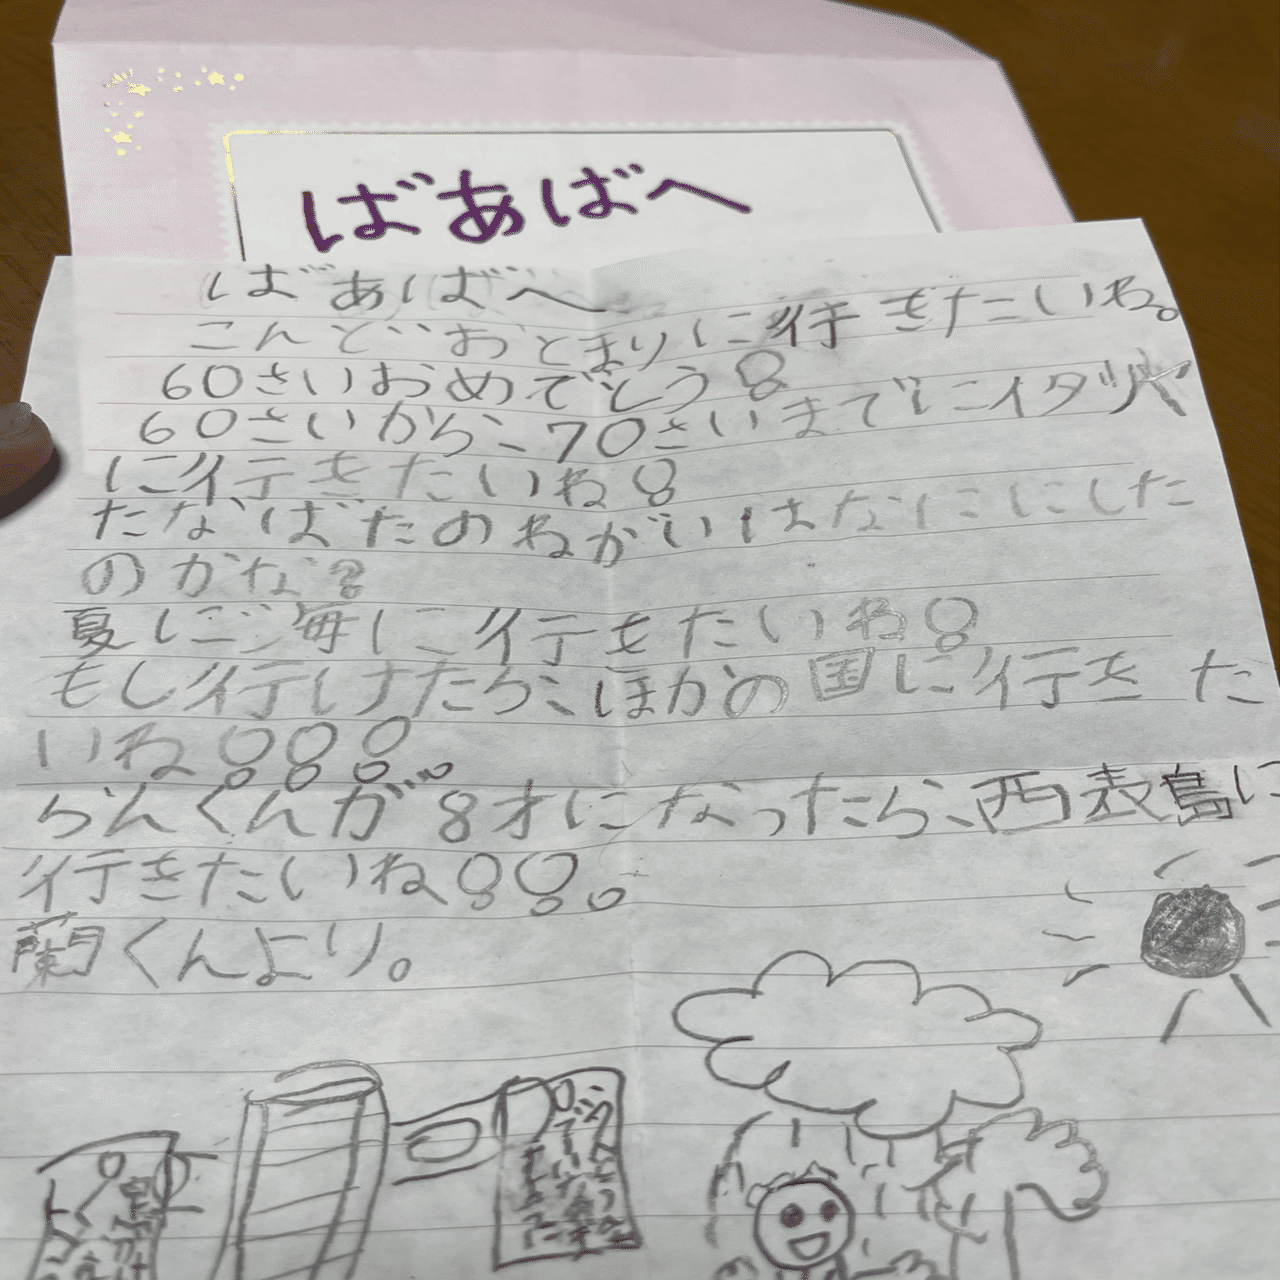 ばあばへ
ばあばへ
こんどおとまりに行きたいね。
60さいおめでとう!
60さいから、70さいまでにイタリヤ
に行きたいね!
たなばたのねがいはなににした
のかな?
夏にご毎に行きたいね!
もし行けたら、ほかの国に行きた
いね!!!
らんくんが8才になったら、西表島に
行きたいね!!。
蘭くんより。